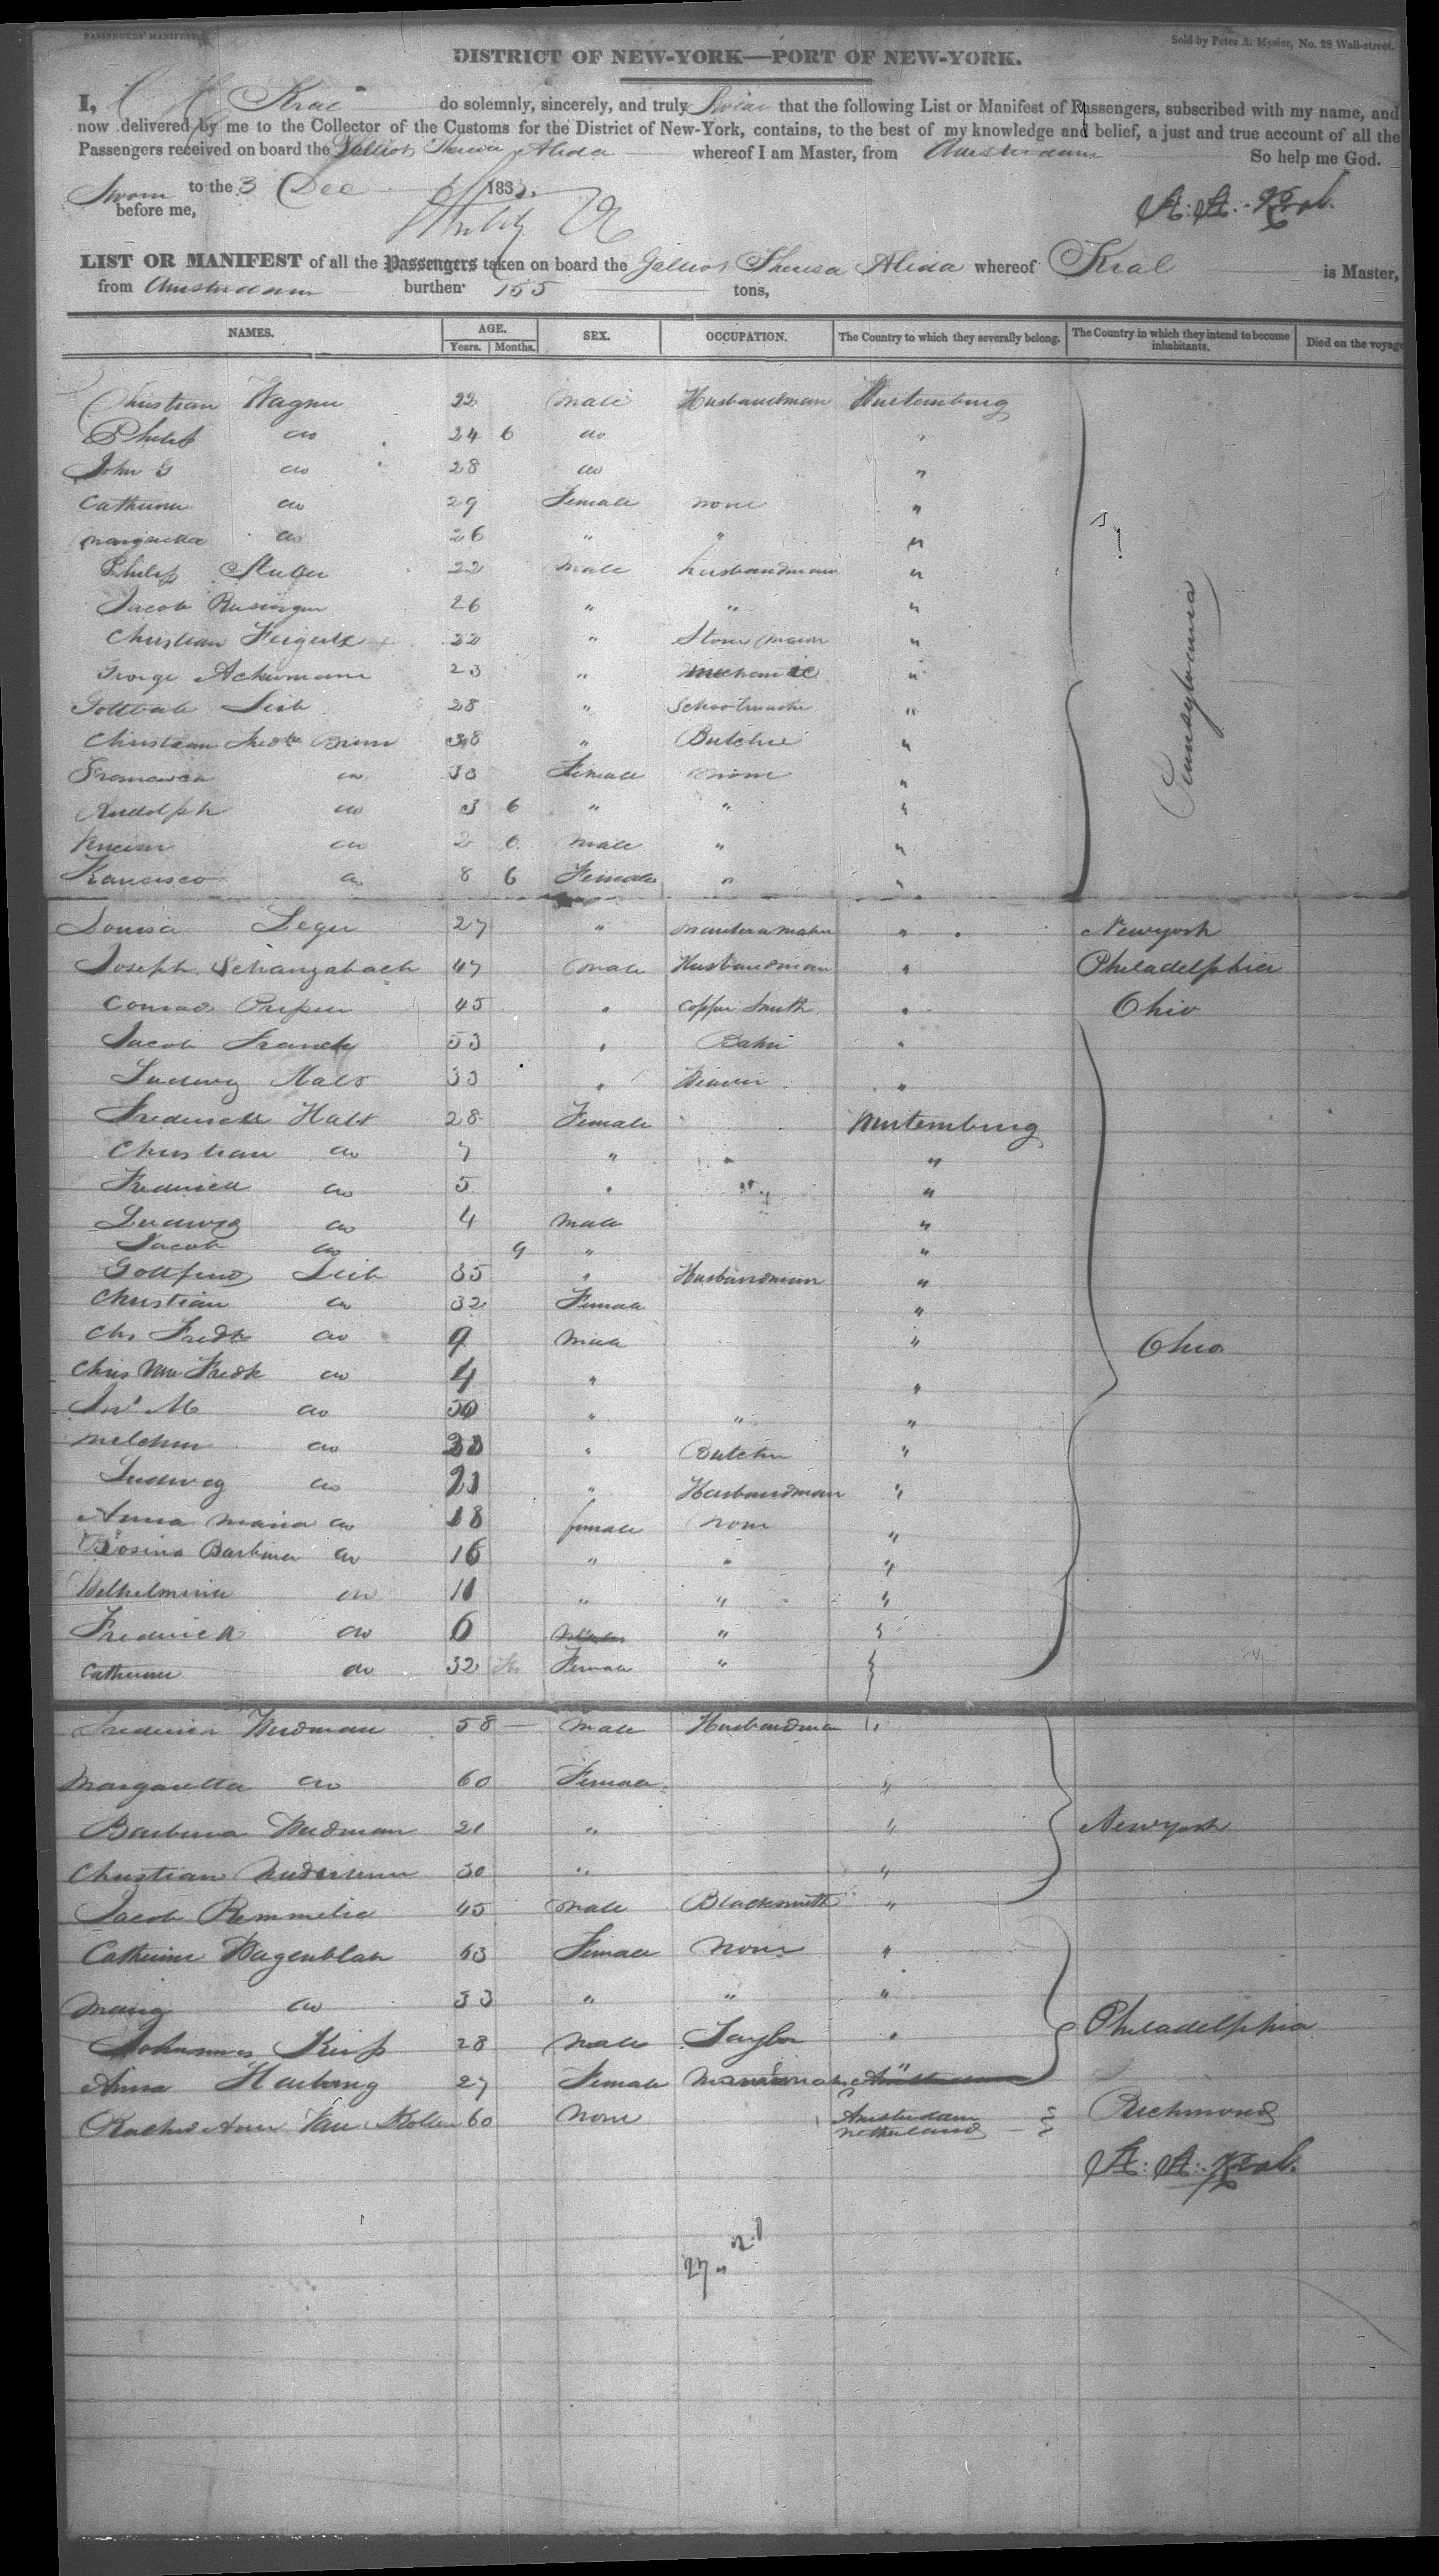 PASSENGERS' MANIFEST
Sold by Peter A. Mesier, No. 28 Wall-street.
DISTRICT OF NEW-YORK—PORT OF NEW-YORK.
I, Kral do solemnly, sincerely, and truly Swear that the following List or Manifest of Passengers, subscribed with my name, and
now delivered by me to the Collector of the Customs for the District of New-York, contains, to the best of my knowledge and belief, a just and true account of all the
Passengers received on board the Galliot Theresa Alida whereof I am Master, from Amsterdam So help me God.
Sworn to the 3 Dec 183
before me,
Kral
LIST OR MANIFEST of all the Passengers taken on board the Galliot Theresa Alida whereof Kral is Master,
from Amsterdam burthen 155 tons,
NAMES. AGE. SEX. OCCUPATION. The Country to which they severally belong. The Country in which they intend to become inhabitants. Died on the voyage
Years. Months.
Christian Wagner 22 male Husbandman Wurtemburg
Philip do 24 6 do "
John G do 28 do "
Catherine do 29 Female none "
Margaretta do 26 " " "
Philip 22 male husbandman "
Jacob 26 " " "
Christian 22 " Stone mason "
George Ackermann 23 " mechanic "
Gottleib Leib 28 " Schoolmaster "
Christian Fredk 38 " Butcher "
Francisca do 30 Female none "
Rudolph do 3 6 " " "
do 2 6 male " "
Francisco do 8 6 Female " "
Pennsylvania
Louisa Leger 27 " mantua maker " Newyork
Joseph Schanzabach 47 male Husbandman " Philadelphia
Conrad 45 " Copper Smith " Ohio
Jacob Franck 53 " Baker "
Ludwig 33 " Weaver "
Frederick Halt 28 Female Wurtemburg
Christian do 7 " " "
Frederick do 5 " " "
Ludwig do 4 male "
Jacob do 9 " "
Gottfried Leib 35 " Husbandman "
Christian do 32 Female "
Chr Fredk do 9 male " Ohio
Chris Wm Fredk do 4 " "
Jno M do 50 " " "
Melchior do 33 " Butcher "
Ludwig do 21 " Husbandman "
Anna Maria do 18 female none "
Rosina Barbara do 16 " " "
Wilhelmina do 11 " " "
Frederick do 6 "
Catherine do 32 Female "
Frederick Weidman 58 male Husbandman "
Margaretta do 60 Female "
Barbara Weidman 21 " " Newyork
Christian 30 " "
Jacob Remmelie 45 male Blacksmith "
Catherine Wagenblah 63 Female None "
do 33 " " "
Johannes 28 male Taylor " Philadelphia
Anna Hartung 27 Female "
Ann Van 60 None Amsterdam Richmond
Netherland
Kral